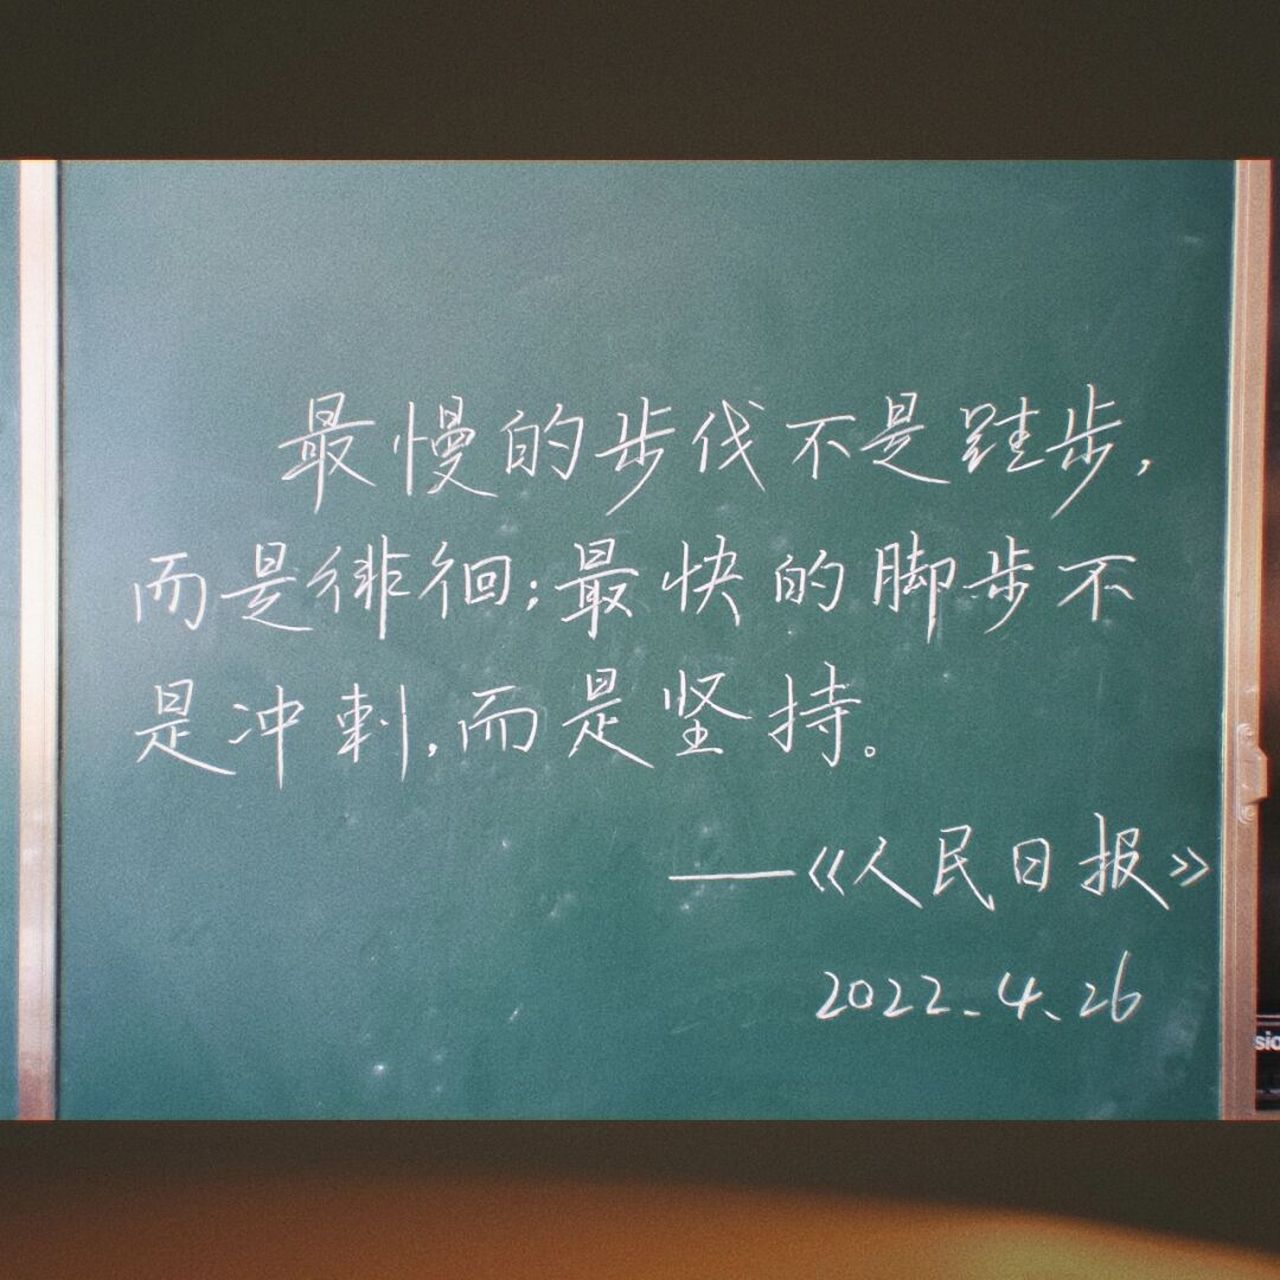 最慢的步伐不是跬步，
而是徘徊；最快的脚步不
是冲刺，而是坚持。
——《人民日报》
2022.4.26
sio